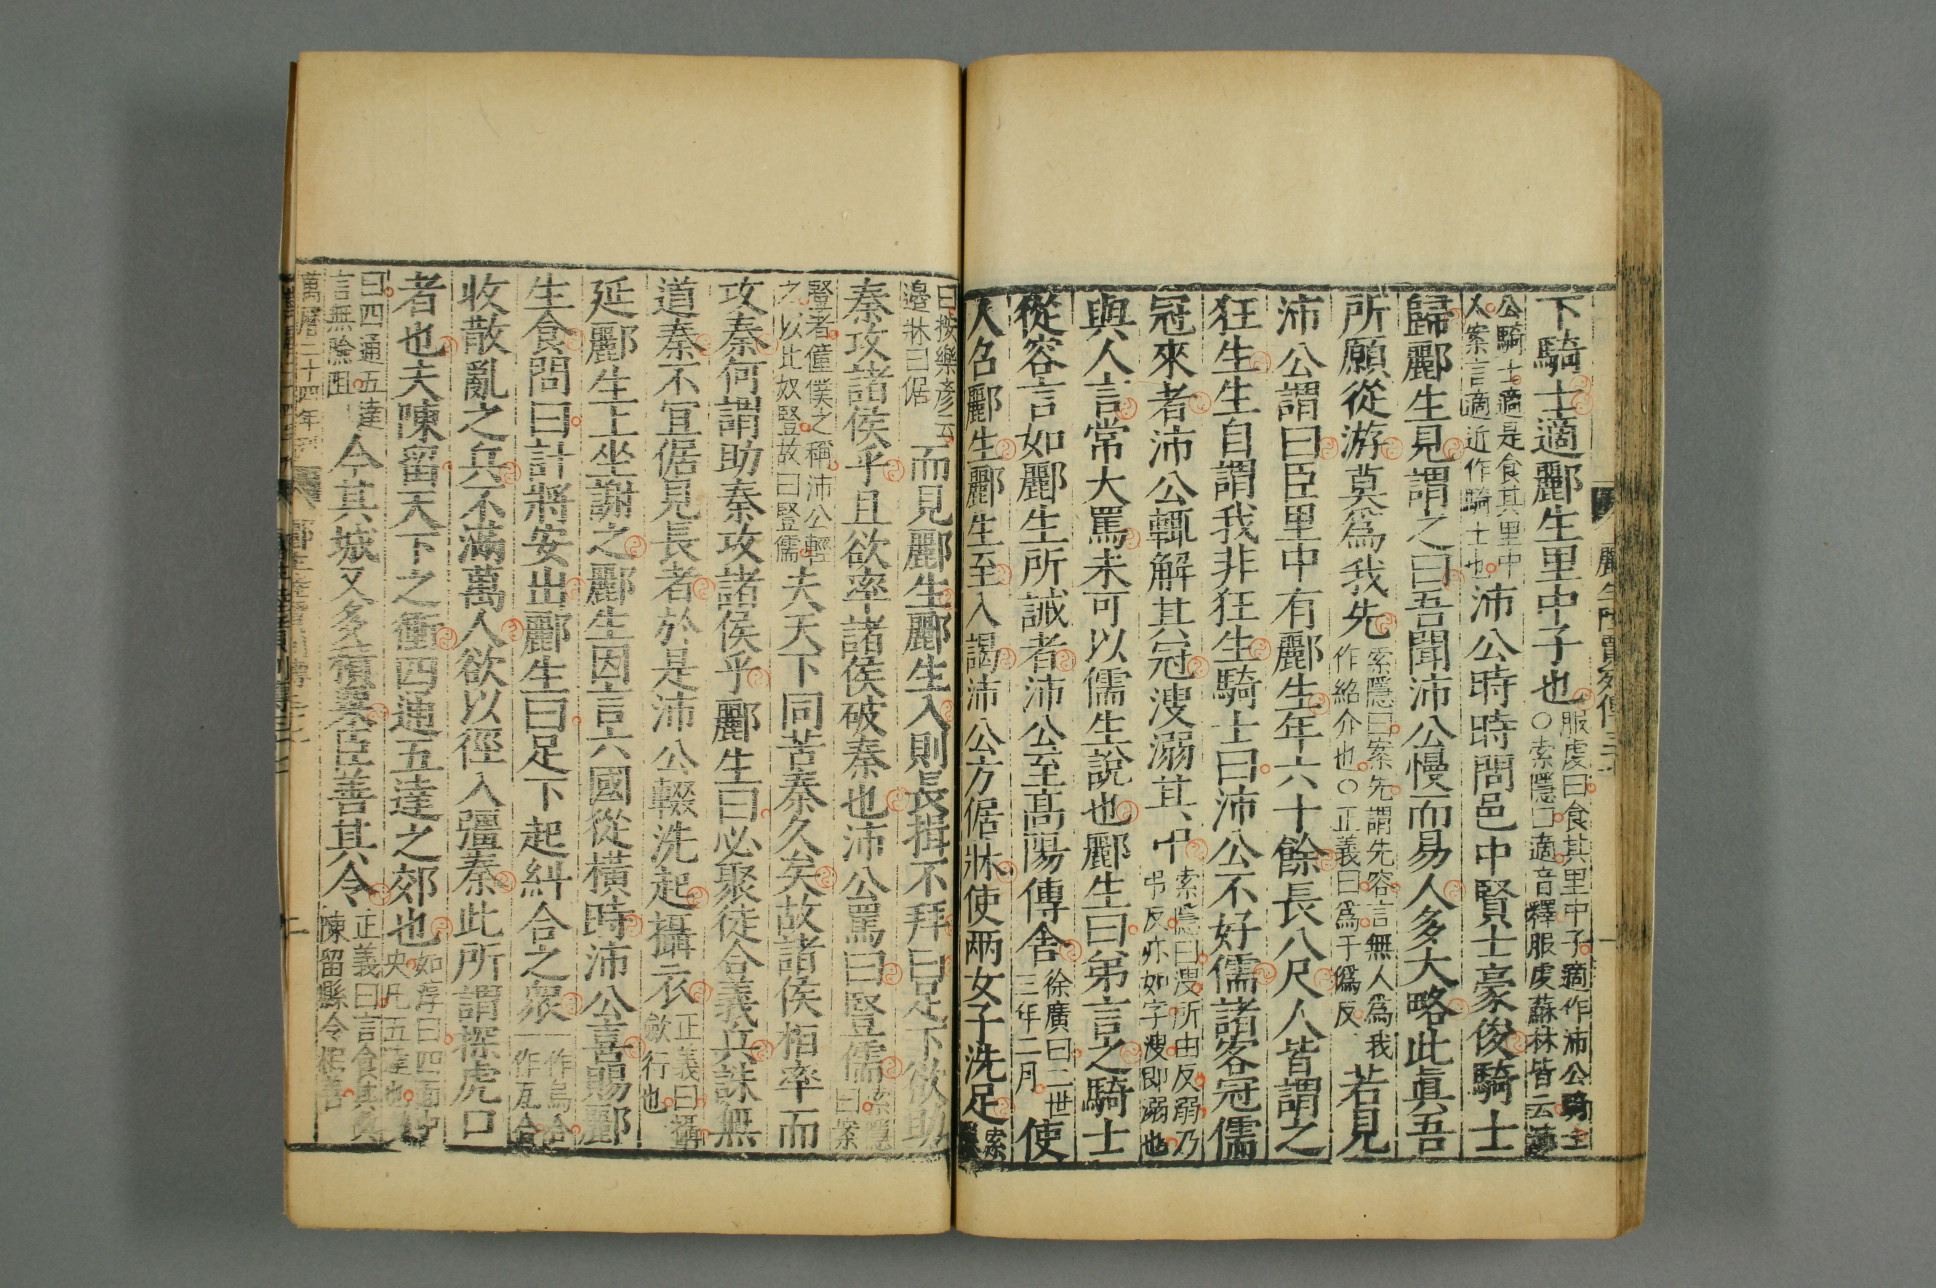 酈生陸賈列傳三十七
下騎士適酈生里中子也服虔曰食其里中子適作沛公騎士○索隱曰適音釋服虔蘇林皆云沛
公騎士適是食其里中人案言適近作騎士也沛公時時問邑中賢士豪俊騎士
歸酈生見謂之曰吾聞沛公慢而易人多大略此眞吾
所願從游莫爲我先索隱曰案先謂先容言無人爲我作紹介也○正義曰爲于僞反若見
沛公謂曰臣里中有酈生年六十餘長八尺人皆謂之
狂生生自謂我非狂生騎士曰沛公不好儒諸客冠儒
冠來者沛公輒解其冠溲溺其中索隱曰溲所由反溺乃弔反亦如字溲卽溺也
與人言常大罵未可以儒生說也酈生曰弟言之騎士
從容言如酈生所誡者沛公至高陽傳舍徐廣曰二世三年二月使
人召酈生酈生至入謁沛公方倨牀使兩女子洗足索隱
曰按樂彦云邊牀曰倨而見酈生酈生入則長揖不拜曰足下欲助
秦攻諸侯乎且欲率諸侯破秦也沛公罵曰豎儒索隱曰案
豎者僮僕之稱沛公輕之以比奴豎故曰豎儒夫天下同苦秦久矣故諸侯相率而
攻秦何謂助秦攻諸侯乎酈生曰必聚徒合義兵誅無
道秦不宜倨見長者於是沛公輟洗起攝衣正義曰攝歛行也
延酈生上坐謝之酈生因言六國從橫時沛公喜賜酈
生食問曰計將安出酈生曰足下起糾合之衆一作烏合一作瓦合
收散亂之兵不滿萬人欲以徑入彊秦此所謂探虎口
者也夫陳留天下之衝四通五達之郊也如淳曰四面中央凡五達也
曰四通五達言無險阻今其城又多積粟臣善其令正義曰言食其與陳留縣令相善
萬曆二十四年刊